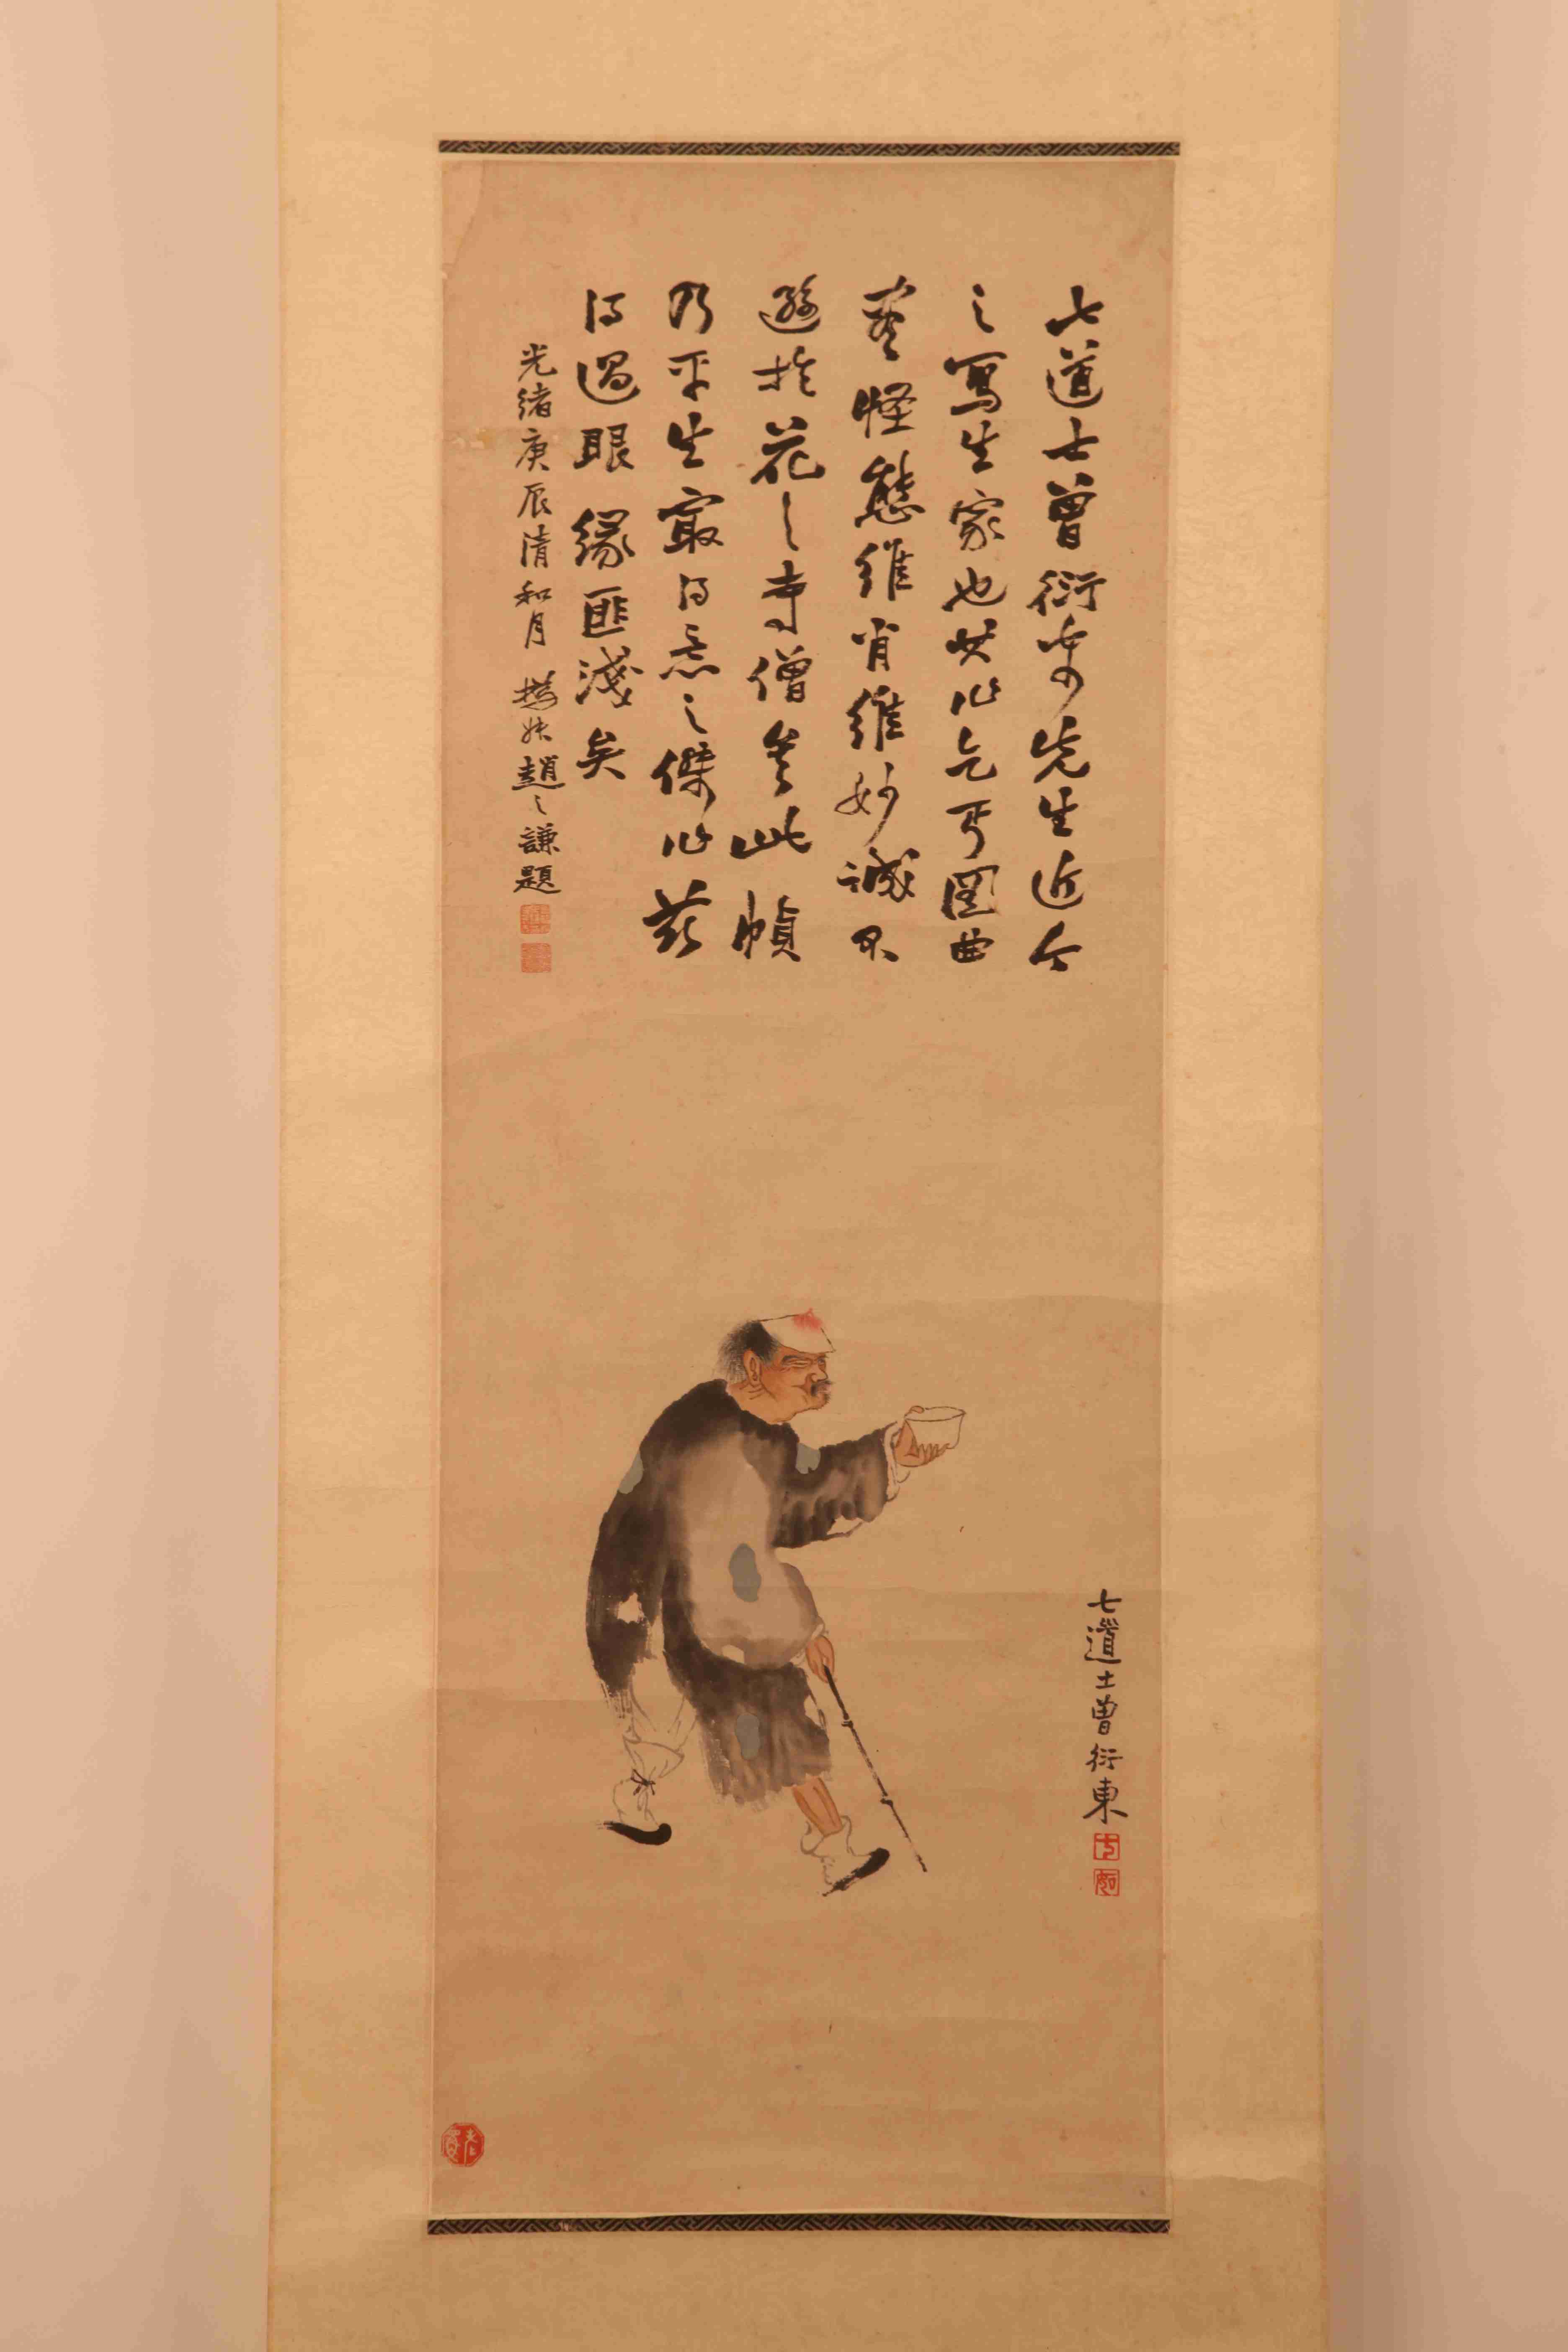 七道士曾衍東先生近今
之寫生家也其作乞丐圖曲
盡怪態維肖維妙誠不
遜於花之寺僧矣此幀
乃平生最得意之傑作茲
得過眼緣匪淺矣
光緒庚辰清和月撝叔趙之謙題
七道士曾衍東